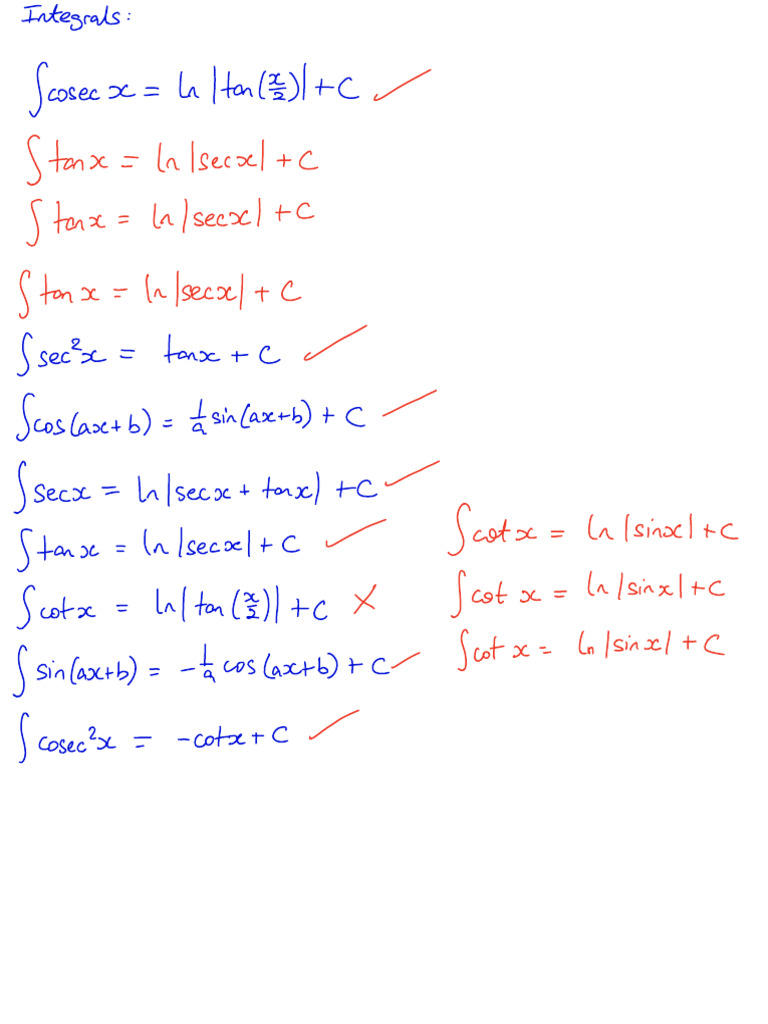 Integrals:
∫cosec x = ln |tan(x/2)| + C ✓
∫tan x = ln |sec x| + C
∫tan x = ln |sec x| + C
∫tan x = ln |sec x| + C
∫sec²x = tan x + C ✓
∫cos(ax+b) = 1/a sin(ax+b) + C ✓
∫sec x = ln |sec x + tan x| + C ✓
∫tan x = ln |sec x| + C ✓
∫cot x = ln |tan(x/2)| + C ✗
∫sin(ax+b) = -1/a cos(ax+b) + C ✓
∫cosec²x = -cot x + C ✓
∫cot x = ln |sin x| + C
∫cot x = ln |sin x| + C
∫cot x = ln |sin x| + C